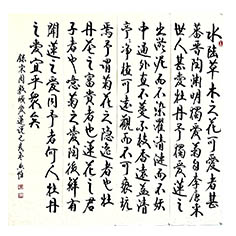 水陆草木之花可爱者甚
蕃晋陶渊明独爱菊自李唐来
世人甚爱牡丹予独爱莲之
出淤泥而不染濯清涟而不妖
中通外直不蔓不枝香远益清
亭亭净植可远观而不可亵玩
焉予谓菊花之隐逸者也牡
丹花之富贵者也莲花之君
子者也噫菊之爱陶后鲜有
闻莲之爱同予者何人牡丹
之爱宜乎众矣